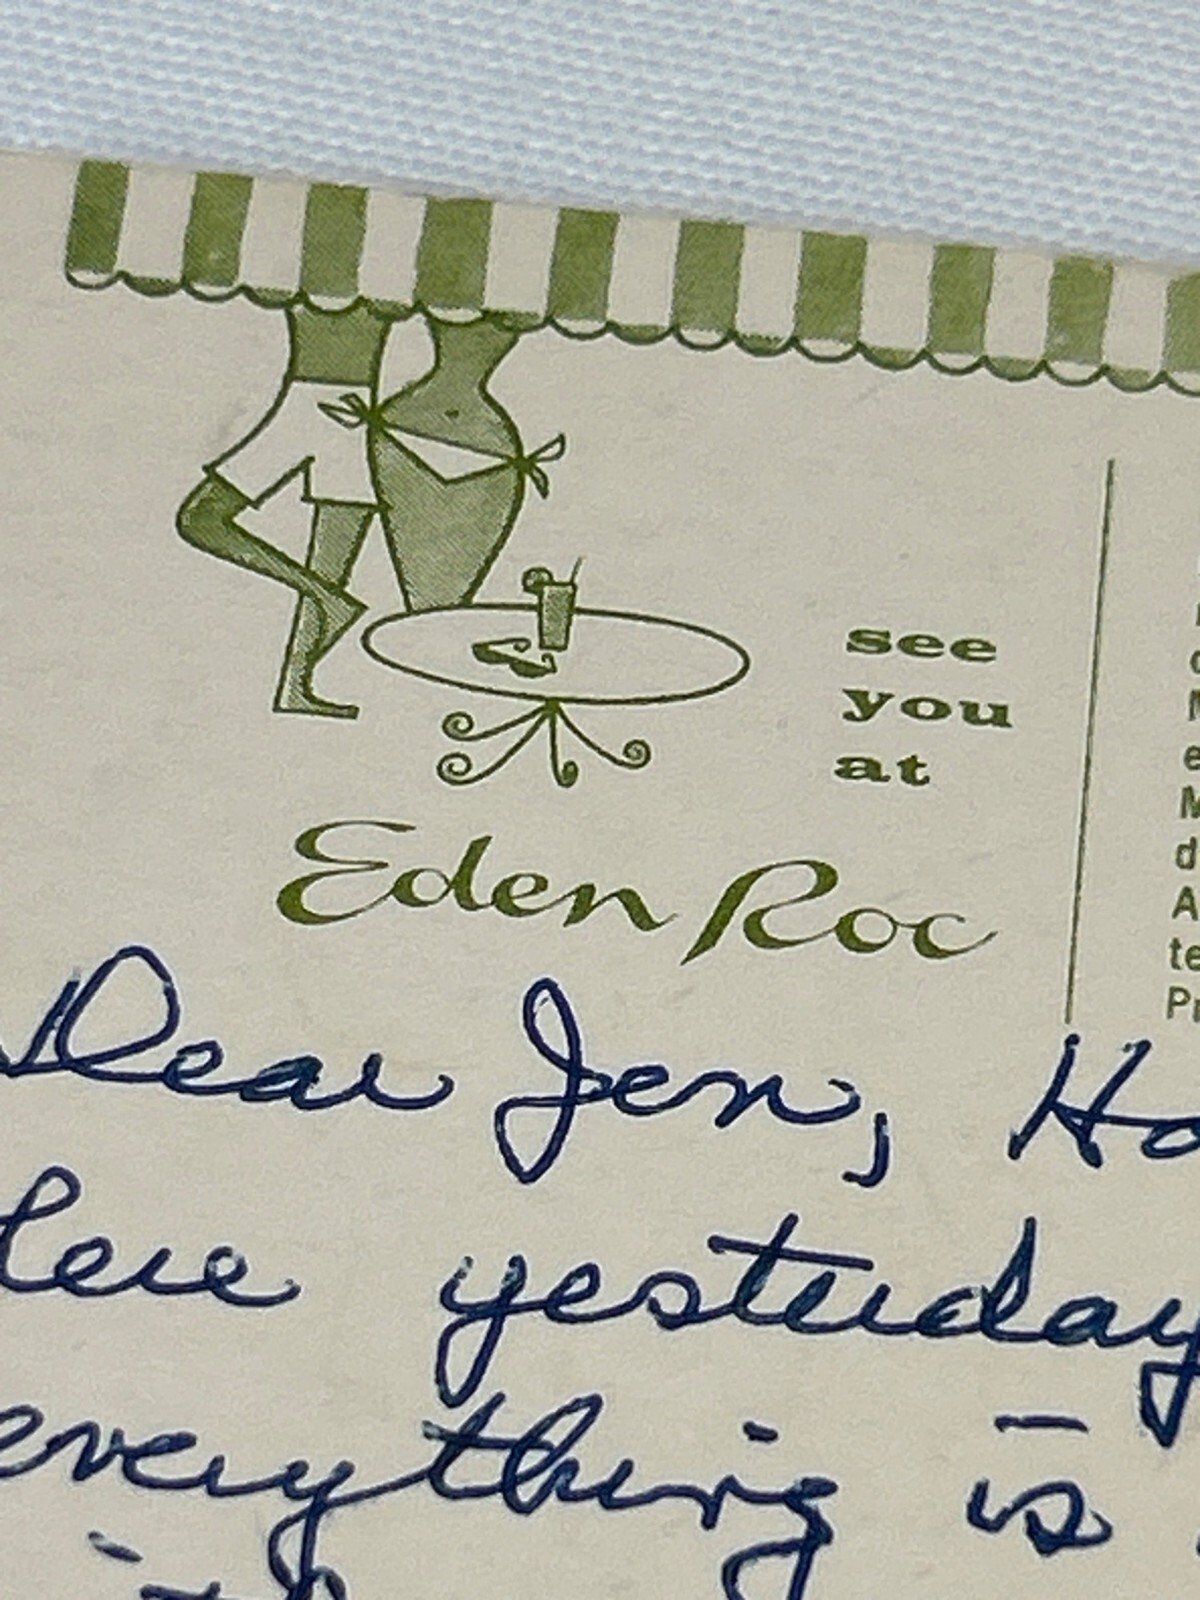 see
you
at
Eden Roc
Dear Jen,
here yesterday
everything is